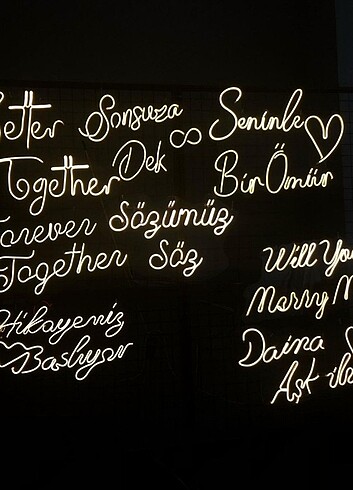 etter
Together
Sonsuza
Dek ∞
Seninle
Bir Ömür
orever
Together
Sözümüz
Söz
Will You
Marry M
Hikayemiz
Başlıyor
Daima
Aşk ile